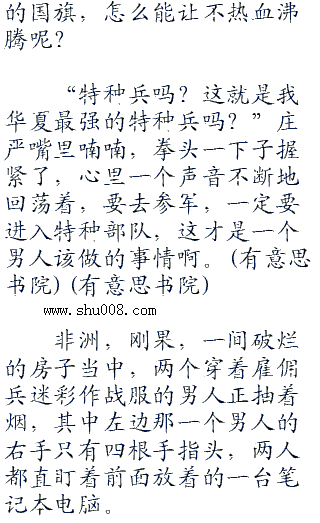 的国旗，怎么能让不热血沸
腾呢？
“特种兵吗？这就是我
华夏最强的特种兵吗？”庄
严嘴里喃喃，拳头一下子握
紧了，心里一个声音不断地
回荡着，要去参军，一定要
进入特种部队，这才是一个
男人该做的事情啊。(有意思
书院)(有意思书院)
www.shu008.com
非洲，刚果，一间破烂
的房子当中，两个穿着雇佣
兵迷彩作战服的男人正抽着
烟，其中左边那一个男人的
右手只有四根手指头，两人
都直盯着前面放着的一台笔
记本电脑。